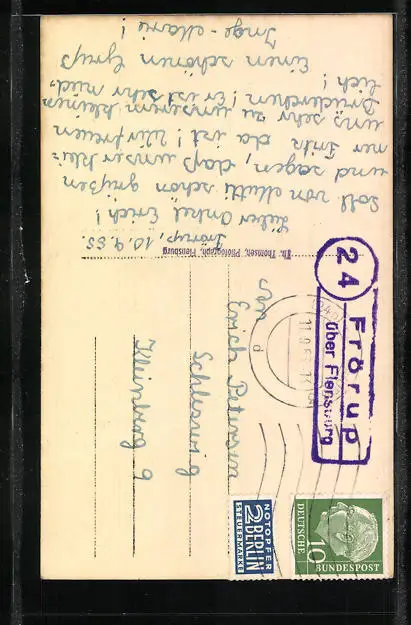 Frörup, 10.9.55.
Lieber Onkel Erich!
Soll von Mutti schön grüßen
und sagen, daß unser klei-
ner Fritz da ist! Wir freuen
uns sehr zu unserem kleinen
Brüderchen! Er ist sehr nied-
lich!
Einen schönen Gruß
Inge-Marie!
Th. Thomsen, Photograph, Flensburg
24
Frörup
über Flensburg
d
An
Erich Petersen
Schleswig
Kleinberg 9
NOTOPFER
2 BERLIN
STEUERMARKE
DEUTSCHE
BUNDESPOST
10